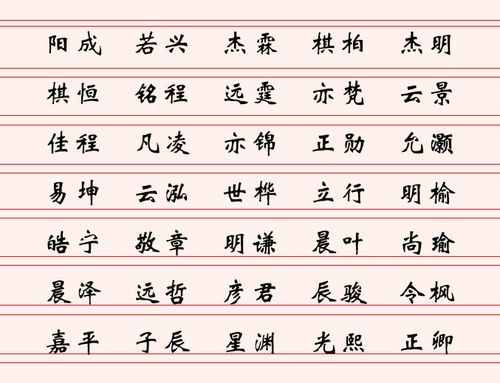 阳成 若兴 杰霖 棋柏 杰明
棋恒 铭程 远霆 亦梵 云景
佳程 凡凌 亦锦 正勋 允灏
易坤 云泓 世桦 立行 明榆
皓宁 敬章 明谦 晨叶 尚瑜
晨泽 远哲 彦君 辰骏 令枫
嘉平 子辰 星渊 光熙 正卿